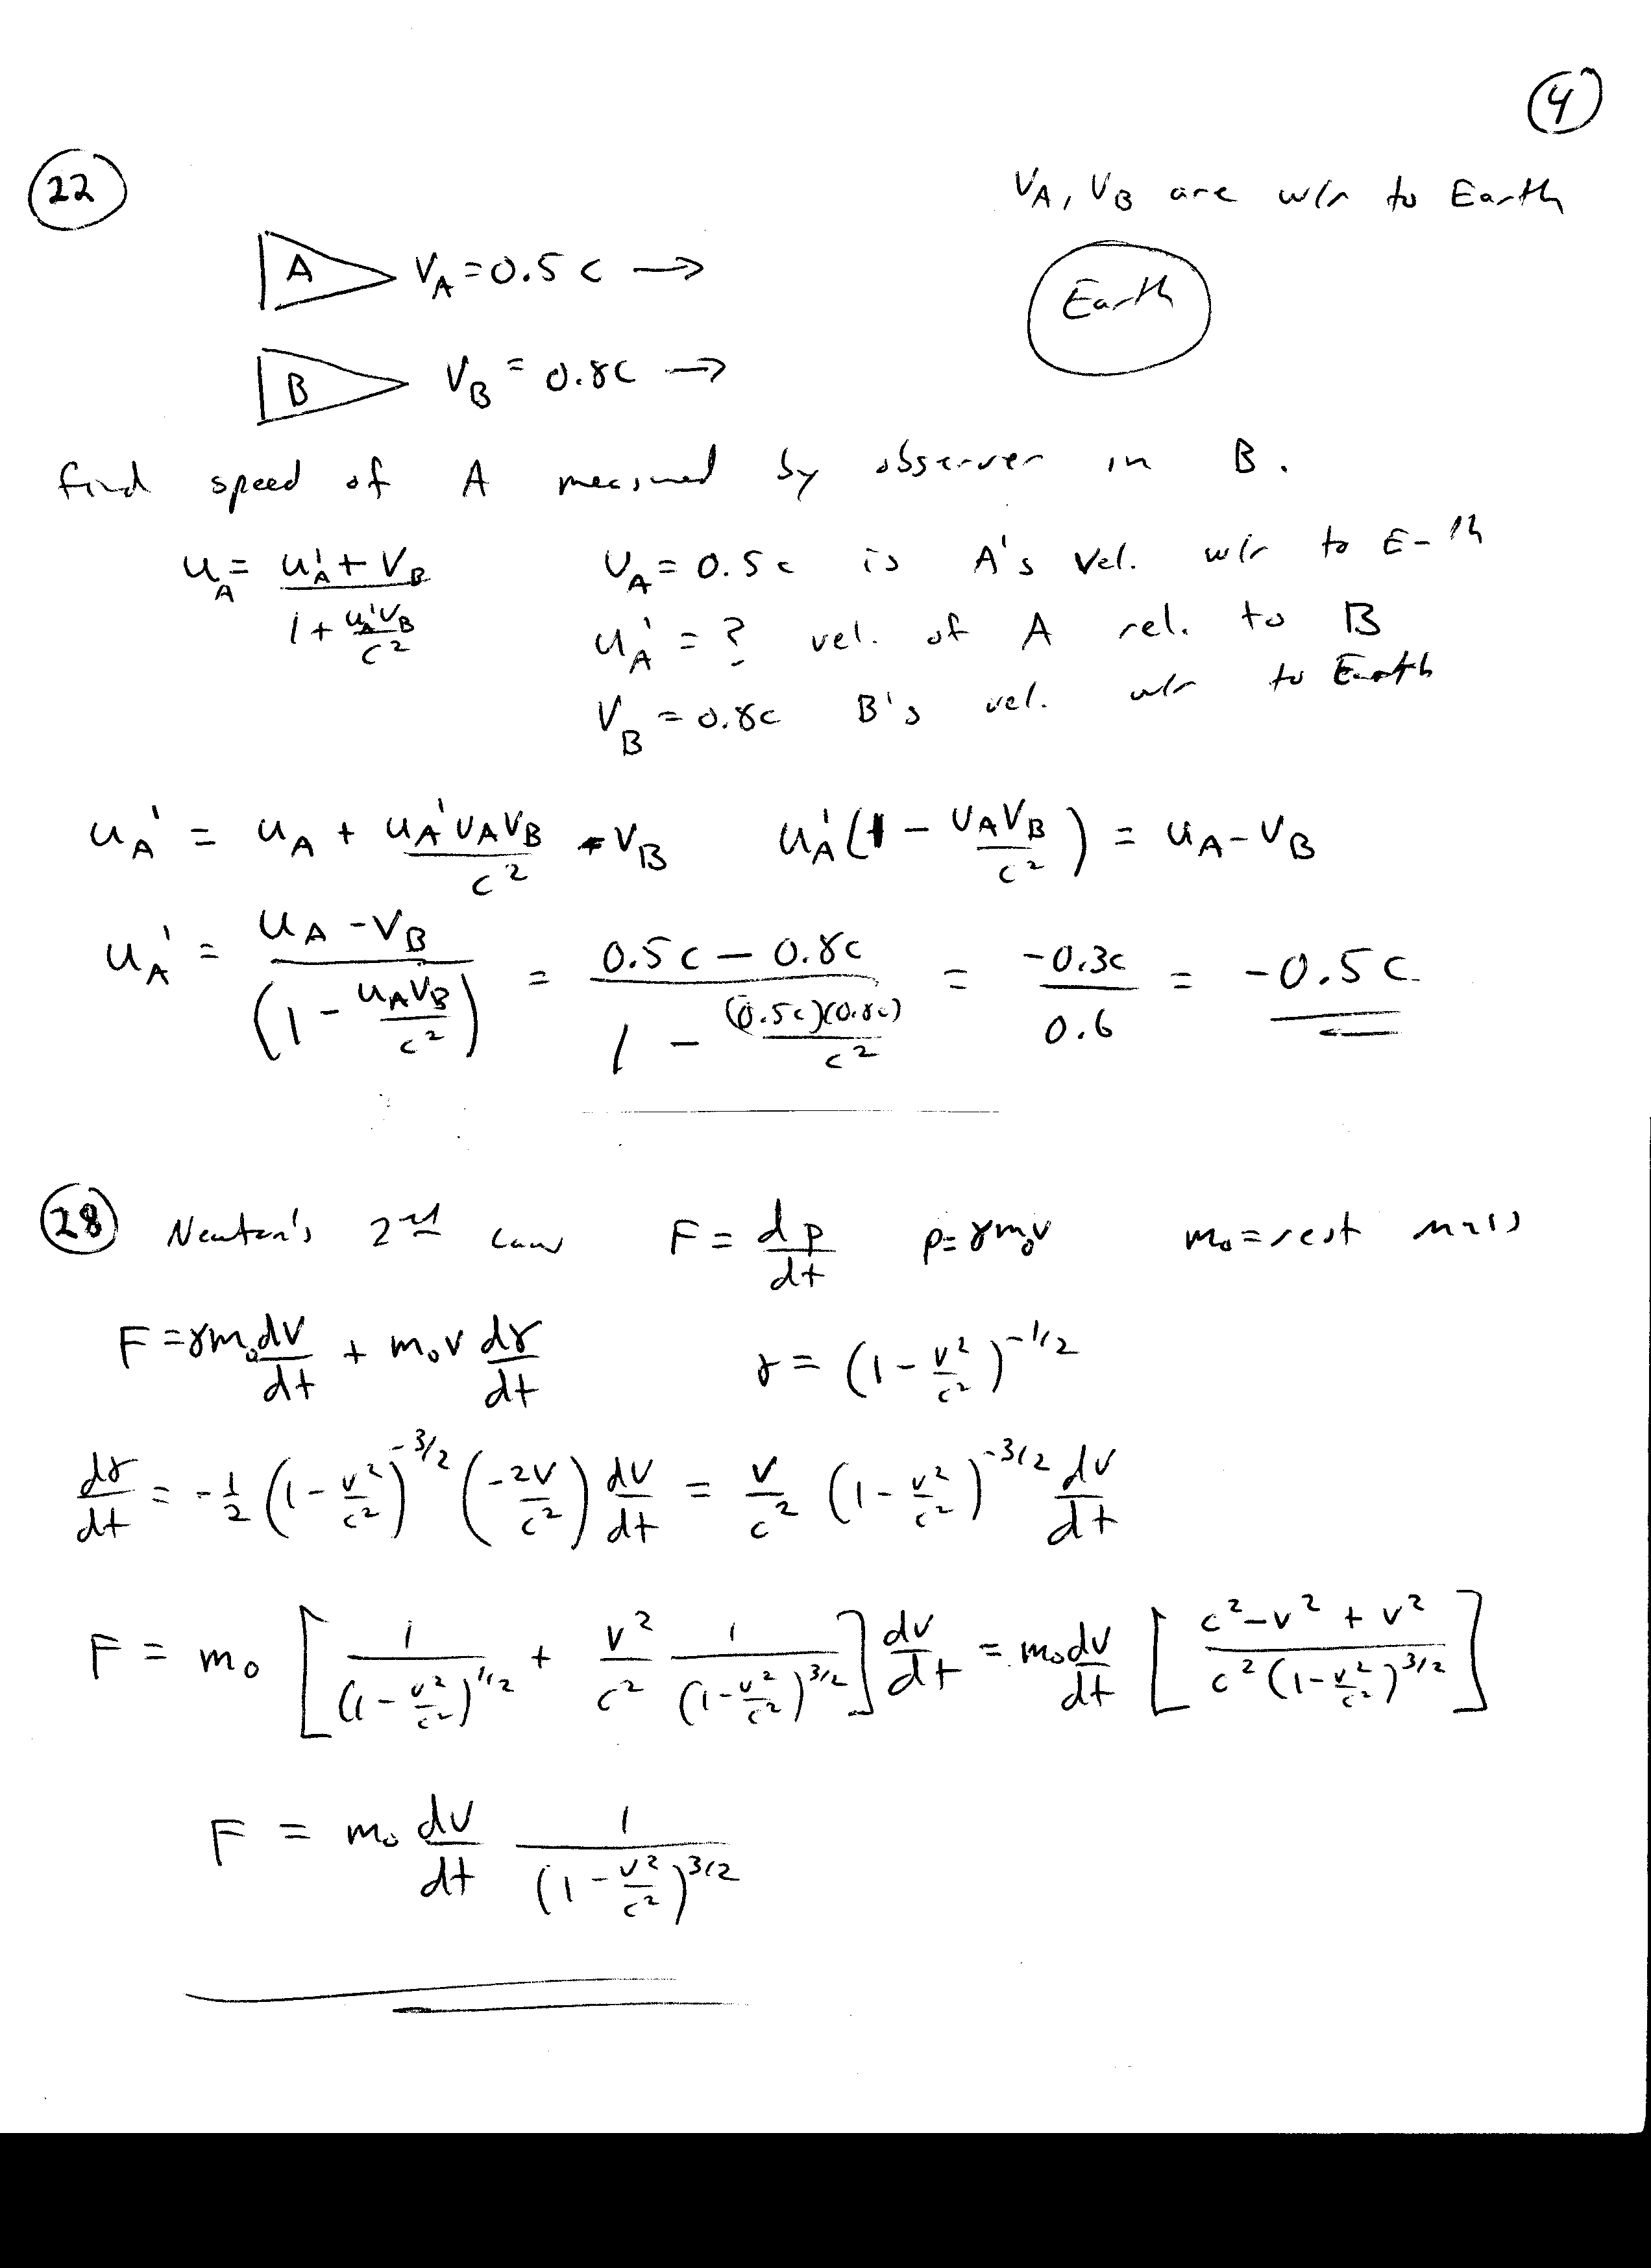 4
22
V_A, V_B are w/r to Earth
A V_A = 0.5c →
Earth
B V_B = 0.8c →
find speed of A measured by observer in B.
u_A = (u_A' + V_B)/(1 + u_A'V_B/c²) U_A = 0.5c is A's vel. w/r to E-th
u_A' = ? vel. of A rel. to B
V_B = 0.8c B's vel. w/r to Earth
u_A' = u_A + u_A'u_AV_B/c² - V_B u_A'(1 - u_AV_B/c²) = u_A - V_B
u_A' = (u_A - V_B)/(1 - u_AV_B/c²) = (0.5c - 0.8c)/(1 - (0.5c)(0.8c)/c²) = -0.3c/0.6 = -0.5c
28 Newton's 2nd law F = dp/dt p = γm₀v m₀ = rest mass
F = γm₀ dv/dt + m₀v dγ/dt γ = (1 - v²/c²)^(-1/2)
dγ/dt = -1/2 (1 - v²/c²)^(-3/2) (-2v/c²) dv/dt = v/c² (1 - v²/c²)^(-3/2) dv/dt
F = m₀ [1/(1 - v²/c²)^(1/2) + v²/c² 1/(1 - v²/c²)^(3/2)] dv/dt = m₀ dv/dt [(c² - v² + v²)/(c²(1 - v²/c²)^(3/2))]
F = m₀ dv/dt 1/(1 - v²/c²)^(3/2)